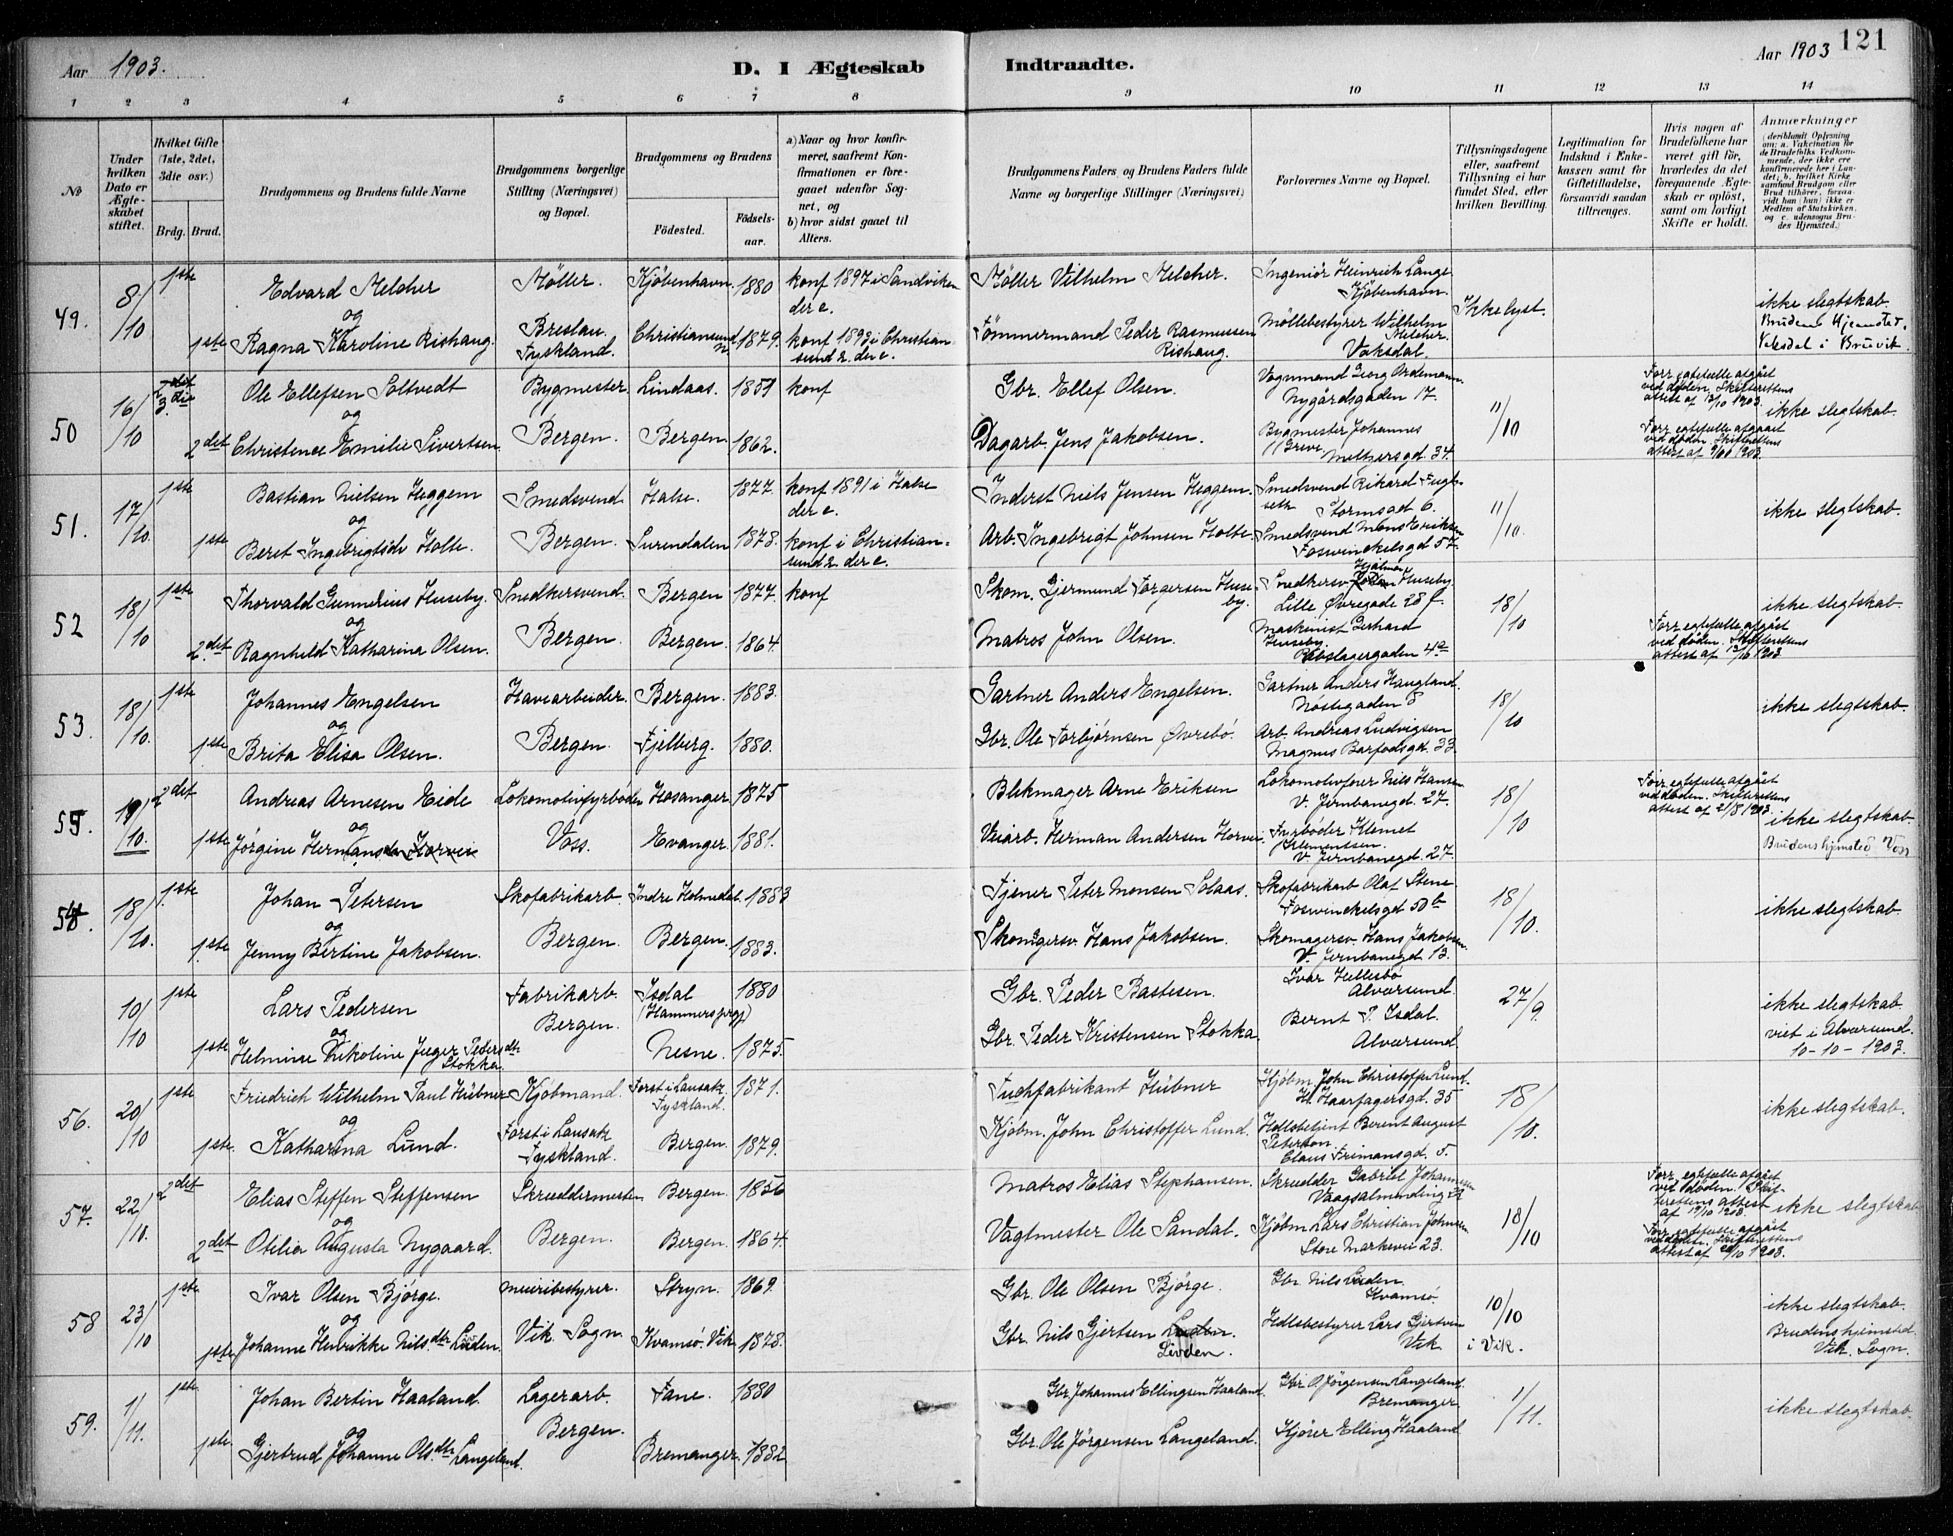 Aar 1903.
D. I Ægteskab Indtraadte.
Aar 1903
121
1 2 3 4 5 6 7 8 9 10 11 12 13 14
No
Under hvilken Dato er Ægteskabet stiftet.
Hvilket Gifte (1ste, 2det, 3die osv.)
Brdg. Brud.
Brudgommens og Brudens fulde Navne
Brudgommens borgerlige Stilling (Næringsvei) og Bopæl.
Brudgommens og Brudens
Födested.
Födselsaar.
a) Naar og hvor konfirmeret, saafremt Konfirmationen er foregaaet udenfor Sognet, og
b) hvor sidst gaaet til Alters.
Brudgommens Faders, og Brudens Faders fulde Navne og borgerlige Stillinger (Næringsvei)
Forlovernes Navne og Bopæl.
Tillysningsdagene eller, saafremt Tillysning ei har fundet Sted, efter hvilken Bevilling.
Legitimation for Indskud i Enkekassen samt for Giftetilladelse, forsaavidt saadan tiltrænges.
Hvis nogen af Brudefolkene har været gift för, hvorledes da det foregaaende Ægteskab er oplöst, samt om lovligt Skifte er holdt.
Anmærkninger
(deriblandt Oplysning om: a. Vakcination for de Brudefolks Vedkommende, der ikke ere konfirmerede her i Landet, b. hvilket Kirkesamfund Brudgom eller Brud tilhörer, forsaavidt han (hun) ikke er Medlem af Statskirken, og c. udensogns Brudes Hjemsted.)
49. 8/10 1ste Edvard Melcher Möller. Kjöbenhavn 1880 konf 1897 i Sandviken der e. Möller Vilhelm Melcher. Ingeniör Heinrich Lange Kjöbenhavn. Ikke lyst. ikke slegtskab.
og
1ste Ragna Karoline Rishaug. Breslau. Tyskland. Christiansund N 1879. konf 1893 i Christiansund N. der e. Tömmermand Peder Rasmussen Rishaug. Möllebestyrer Wilhelm Melcher. Vaksdal. Brudens Hjemsted. Vaksdal i Bruvik.
50 16/10 3die Ole Ellefsen Soltvedt Bygmester Lindaas. 1851 konf Gbr. Ellef Olsen. Vognmand Georg Ardemann Nygårdsgaden 17. 11/10 Forr egtefælle afgået ved döden. Skifterettens attest af 12/10 1903. ikke slegtskab.
og
2det Christence Emilie Sivertsen Bergen. Bergen 1862. Dagarb. Jens Jakobsen. Bygmester Johannes Greve Meltzersgd 34. Forr egtefælle afgaaet ved döden. Skifterettens
51. 17/10. 1ste Bastian Nielsen Heggem Smedsvend Halse. 1877. konf 1891 i Halse der e. Inderst Niels Jensen Heggem. Smedsvend Rikard Fuglseth Stormsgd 6. 11/10. ikke slegtskab.
og
1ste Beret Ingebrigtsdtr Holte. Bergen. Surendalen 1878. konf i Christiansund N. der e. Arb. Ingebrigt Johnsen Holte. Smedsvend Mons Eriksen Foswinckelsgd 57.
52 18/10 1ste Thorvald Gunnerius Huseby. Snedkersvend. Bergen 1877. konf Skom. Gjermund Torgersen Huseby. Snedkersv Hjalmar Huseby. Lille Övregade 28 f. 18/10 ikke slegtskab.
og
2det Ragnhild Katharina Olsen. Bergen. Bergen. 1864. Matros John Olsen. Maskinist Gerhard Huseby Rebslagergaden 4a Forr egtefælle afgået ved döden. Skifterettens attest af 12/10 1903.
53. 18/10. 1ste Johannes Engelsen Havearbeider. Bergen. 1883. Gartner Anders Engelsen. Gartner Anders Haugland. Nöstegaden 8 18/10 ikke slegtskab.
og
1ste Brita Elisa Olsen. Bergen. Fjelberg. 1880. Gbr. Ole Torbjörnsen Övrebö. Arb. Andreas Ludvigsen Magnus Barfodsgd. 33.
55. 19/10. 2det Andreas Arnesen Eide Lokomotivfyrböder Hosanger. 1875 Blikmager Arne Eriksen Lokomotivförer Nils Hansen V. Jernbanegd. 27. 18/10 Forr egtefælle afgået ved döden. Skifterettens attest af 21/8 1903. ikke slegtskab.
og
1ste Jörgine Hermansdtr Horvei Voss. Evanger. 1881. Veiarb. Herman Andersen Horvei. Fyrböder Klemet Klementsen. V. Jernbanegd. 27. Brudens hjemsted Voss
54. 18/10. 1ste Johan Petersen Skofabrikarb. Indre Holmedal. 1883 Tjener Peter Monsen Solaas. Skofabrikarb Olaf Stene Foswinckelsgd 50b 18/10. ikke slegtskab.
og
1ste Jenny Bertine Jakobsen. Bergen. Bergen. 1883. Skomgersv. Hans Jakobsen. Skomagersv. Hans Jakobsen. V. Jernbanegd 13.
10/10 1ste Lars Pedersen Fabrikarb. Isdal (Hammers prgj) 1880 Gbr. Peder Bastesen. Ivar Hellesbö Alversund. 27/9. ikke slegtskab
og
1ste Helmine Nikoline Jæger Pedersdtr Stokka. Bergen. Nesne. 1875. Gbr. Peder Kristensen Stokka. Bernt P. Isdal. Alversund. viet i Alversund. 10-10-1903.
56. 20/10 1ste Friedrich Wilhelm Paul Hübner Kjöbmand. Forst i Lausatz Tyskland. 1871. Tuchfabrikant Hübner Kjöbm. John Christoffer Lund. H. Haarfagersgd. 35 18/10. ikke slegtskab.
og
1ste. Katharina Lund. Forst i Lausatz Tyskland. Bergen. 1879. Kjöbm. John Christoffer Lund. Hdlsbetjent Berent August Peterson. Claus Frimansgd. 5.
57. 22/10. 2det Elias Steffen Steffensen Skræddermester Bergen. 1856 Matros Elias Stephansen. Skrædder Gabriel Johannesen Vaagsalmending 22 18/10 Forr egtefælle afgået ved döden. Skifterettens attest af 19/10 1903. ikke slegtskab
og
2det Otilia Augusta Nygaard. Bergen. Bergen. 1864. Vagtmester Ole Sandal. Kjöbm. Lars Christian Johnsen Store Markevei 23. Forr egtefælle afgået ved döden. Skifterettens attest af 20/10 1903.
58 23/10 1ste Ivar Olsen Björge. meieribestyrer. Stryn. 1869. Gbr. Ole Olsen Björge. Gbr. Nils Liden. Kvamsö. 10/10 ikke slegtskab.
og
1ste Johanne Henrikke Nils.dtr Liden. Vik Sogn. Kvamsö. Vik 1878. Gbr. Nils Gjertsen Livden. Hdlsbestyrer Lars Gjertsen Vik i Vik. Brudens hjemsted. Vik. Sogn.
59. 1/11. 1ste Johan Bertin Haaland Lagerarb. Fane. 1880 Gbr. Johannes Ellingsen Haaland. Gbr O. Jörgensen Langeland. Bremanger 1/11. ikke slegtskab.
og
1ste. Gjertrud Johanne Ols.dtr Langeland. Bergen. Bremanger. 1882 Gbr. Ole Jörgensen Langeland. Kjörer Elling Haaland